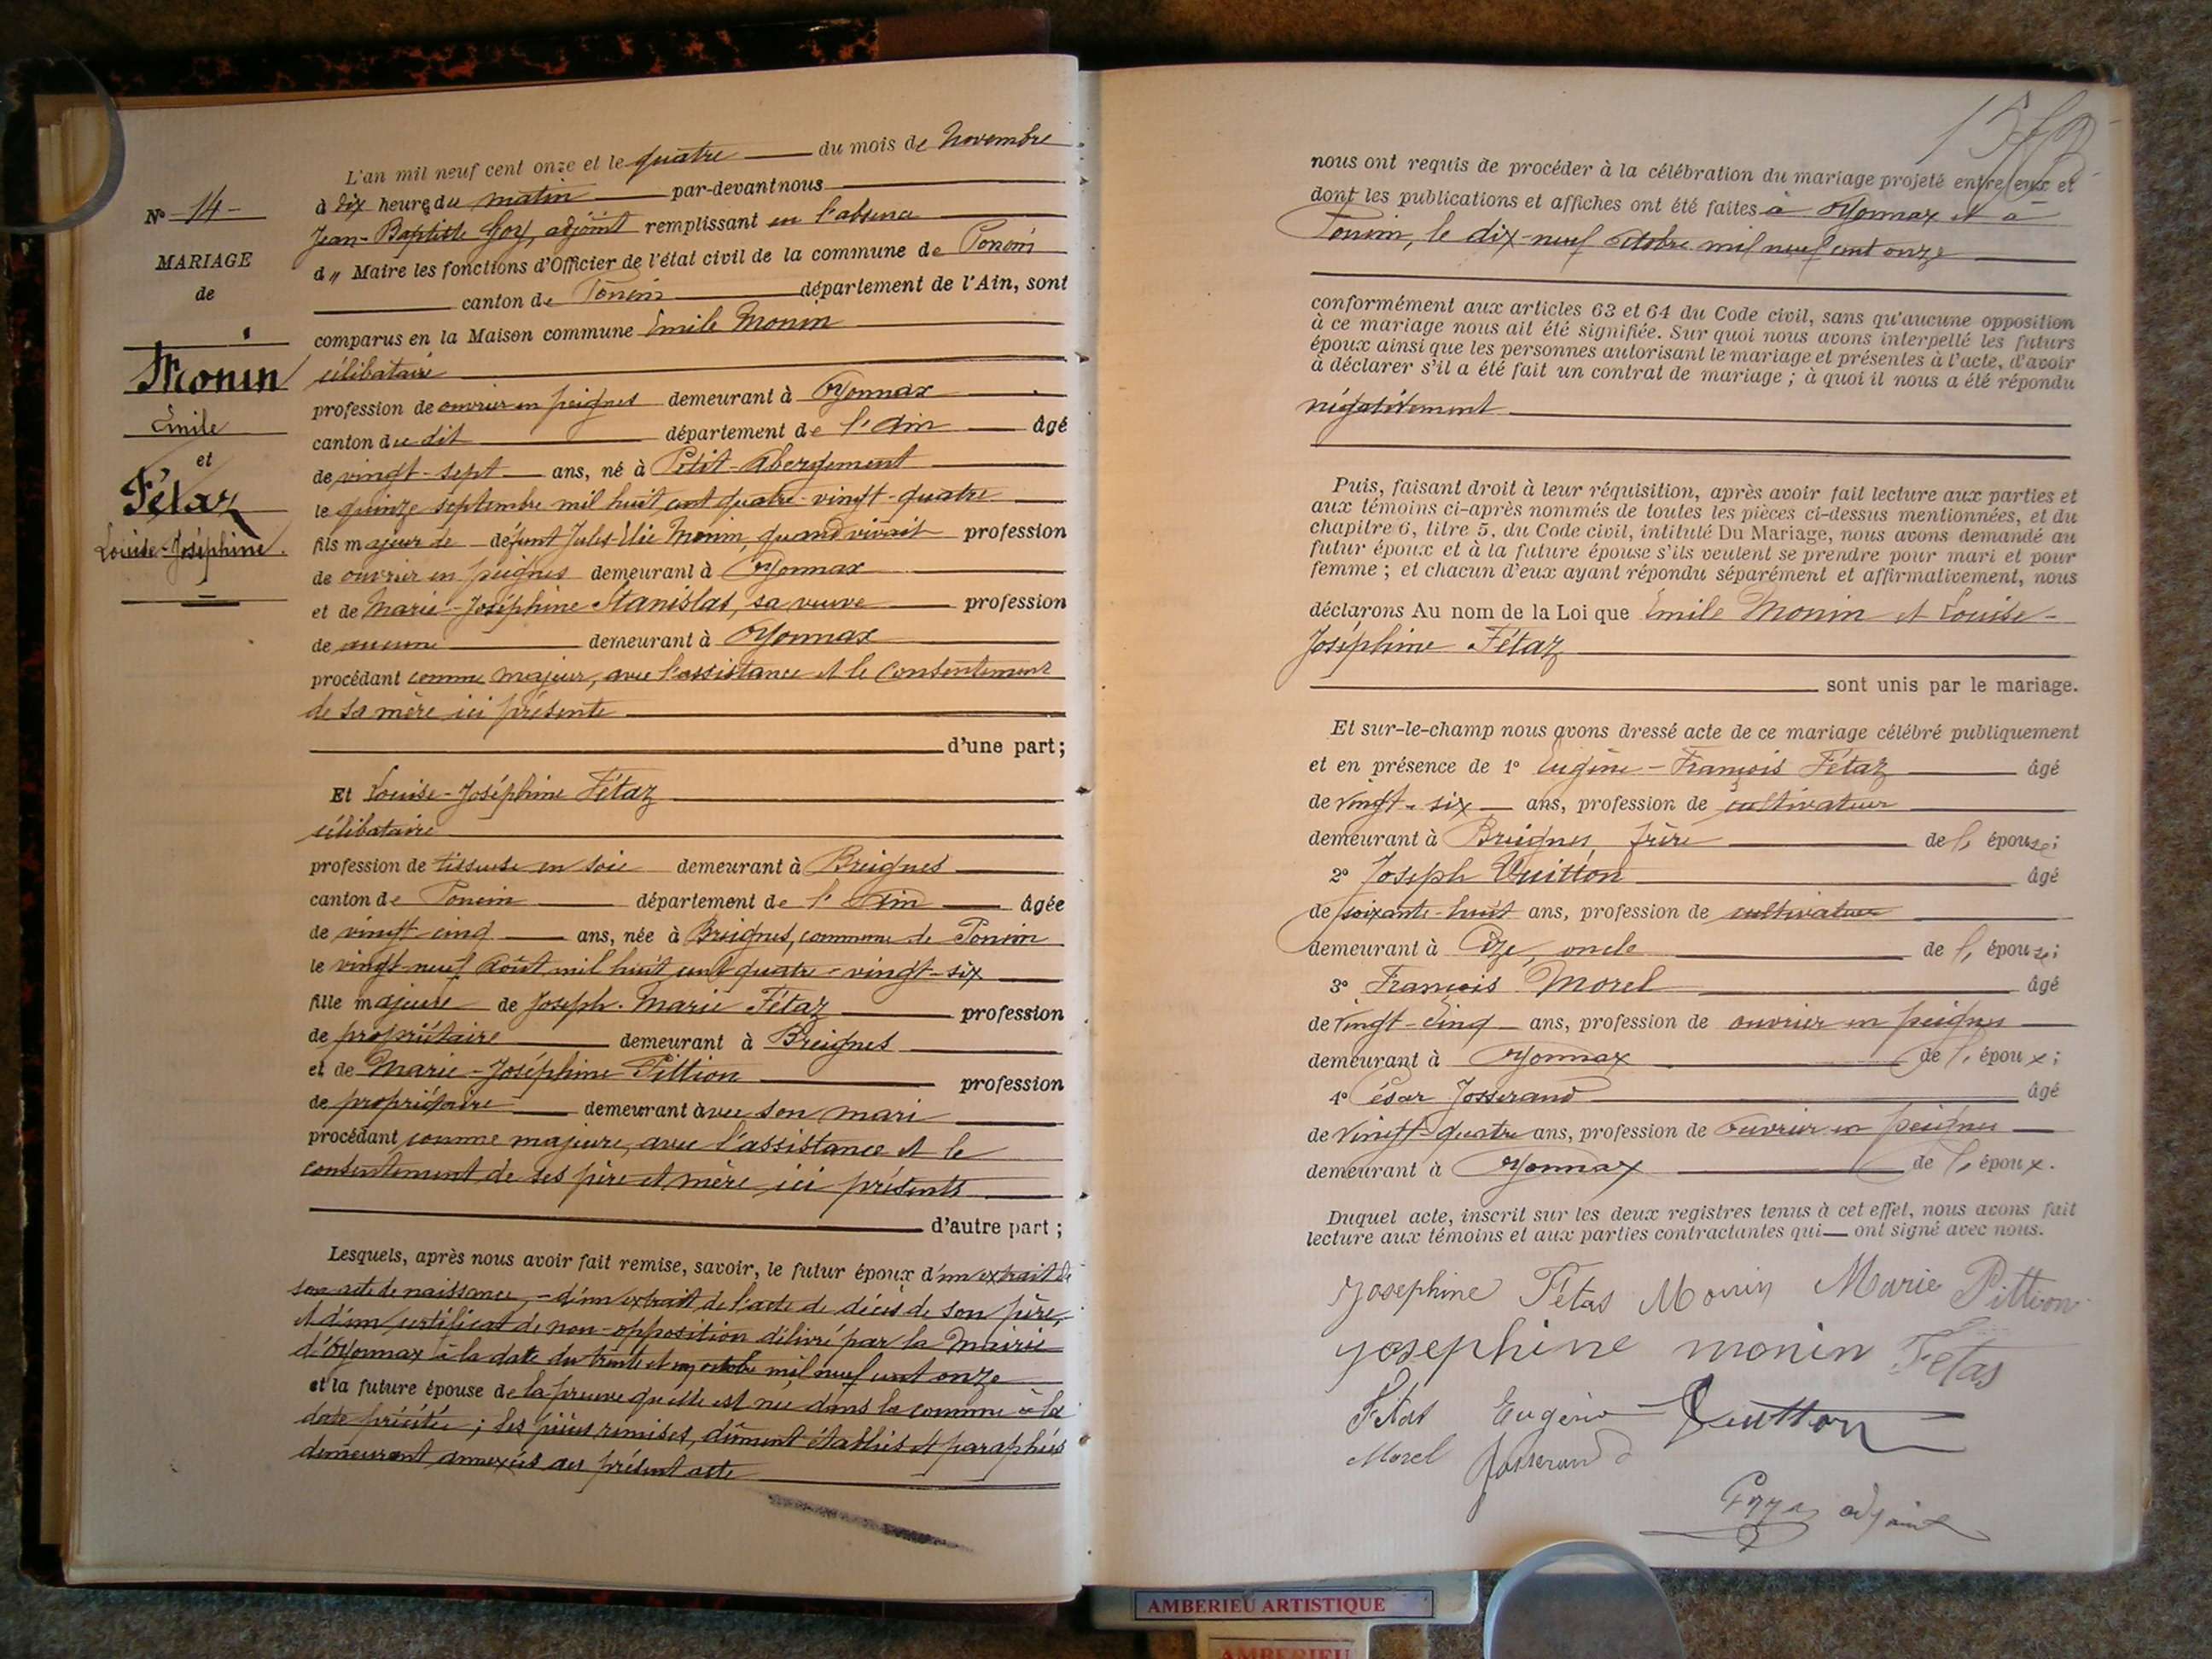 N° 14
MARIAGE
de
Monin
Emile
et
Fétaz
Louise-Joséphine.
L'an mil neuf cent onze et le quatre du mois de Novembre
à dix heures du matin par-devant nous
Jean-Baptiste Goy, adjoint remplissant en l'absence
d" Maire les fonctions d'Officier de l'état civil de la commune de Poncin
canton de Poncin département de l'Ain, sont
comparus en la Maison commune Emile Monin
célibataire
profession de ouvrier en peignes demeurant à Oyonnax
canton du dit département de l'Ain âgé
de vingt-sept ans, né à Petit-Abergement
le quinze septembre mil huit cent quatre-vingt-quatre
fils majeur de défunt Jules Elie Monin, quand vivait profession
de ouvrier en peignes demeurant à Oyonnax
et de Marie-Joséphine Stanislas, sa veuve profession
de aucune demeurant à Oyonnax
procédant comme majeur, avec l'assistance et le consentement
de sa mère ici présente
d'une part;
Et Louise-Joséphine Fétaz
célibataire
profession de tisseuse en soie demeurant à Breignes
canton de Poncin département de l'Ain âgée
de vingt cinq ans, née à Breignes, commune de Poncin
le vingt-neuf Août mil huit cent quatre-vingt-six
fille majeure de Joseph-Marie Fétaz profession
de propriétaire demeurant à Breignes
et de Marie-Joséphine Pittion profession
de propriétaire demeurant avec son mari
procédant comme majeure, avec l'assistance et le
consentement de ses père et mère ici présents
d'autre part;
Lesquels, après nous avoir fait remise, savoir, le futur époux d'un extrait de
son acte de naissance, - d'un extrait de l'acte de décès de son père,
et d'un certificat de non-opposition délivré par la Mairie
d'Oyonnax à la date du trente et un octobre mil neuf cent onze
et la future épouse de la preuve qu'elle est née dans la commune à la
date précitée; les pièces remises, dûment établies et paraphées
demeurant annexées au présent acte
nous ont requis de procéder à la célébration du mariage projeté entre eux et
dont les publications et affiches ont été faites à Oyonnax et à
Poncin, le dix-neuf octobre mil neuf cent onze
conformément aux articles 63 et 64 du Code civil, sans qu'aucune opposition
à ce mariage nous ait été signifiée. Sur quoi nous avons interpellé les futurs
époux ainsi que les personnes autorisant le mariage et présentes à l'acte, d'avoir
à déclarer s'il a été fait un contrat de mariage; à quoi il nous a été répondu
négativement
Puis, faisant droit à leur réquisition, après avoir fait lecture aux parties et
aux témoins ci-après nommés de toutes les pièces ci-dessus mentionnées, et du
chapitre 6, titre 5, du Code civil, intitulé Du Mariage, nous avons demandé au
futur époux et à la future épouse s'ils veulent se prendre pour mari et pour
femme; et chacun d'eux ayant répondu séparément et affirmativement, nous
déclarons Au nom de la Loi que Emile Monin et Louise-
Joséphine Fétaz
sont unis par le mariage.
Et sur-le-champ nous avons dressé acte de ce mariage célébré publiquement
et en présence de 1° Eugène-François Fétaz âgé
de vingt-six ans, profession de cultivateur
demeurant à Breignes, frère de l'épouse;
2° Joseph Vuitton âgé
de soixante-huit ans, profession de cultivateur
demeurant à Cize, oncle de l'épouse;
3° François Morel âgé
de vingt-cinq ans, profession de ouvrier en peignes
demeurant à Oyonnax de l'époux;
4° César Josserand âgé
de vingt-quatre ans, profession de ouvrier en peignes
demeurant à Oyonnax de l'époux.
Duquel acte, inscrit sur les deux registres tenus à cet effet, nous avons fait
lecture aux témoins et aux parties contractantes qui ont signé avec nous.
Josephine Fétas Monin Marie Pittion
josephine monin Fetas
Fétas Eugène Vuitton
Morel Josserand
adjoint
AMBERIEU ARTISTIQUE
AMBERIEU